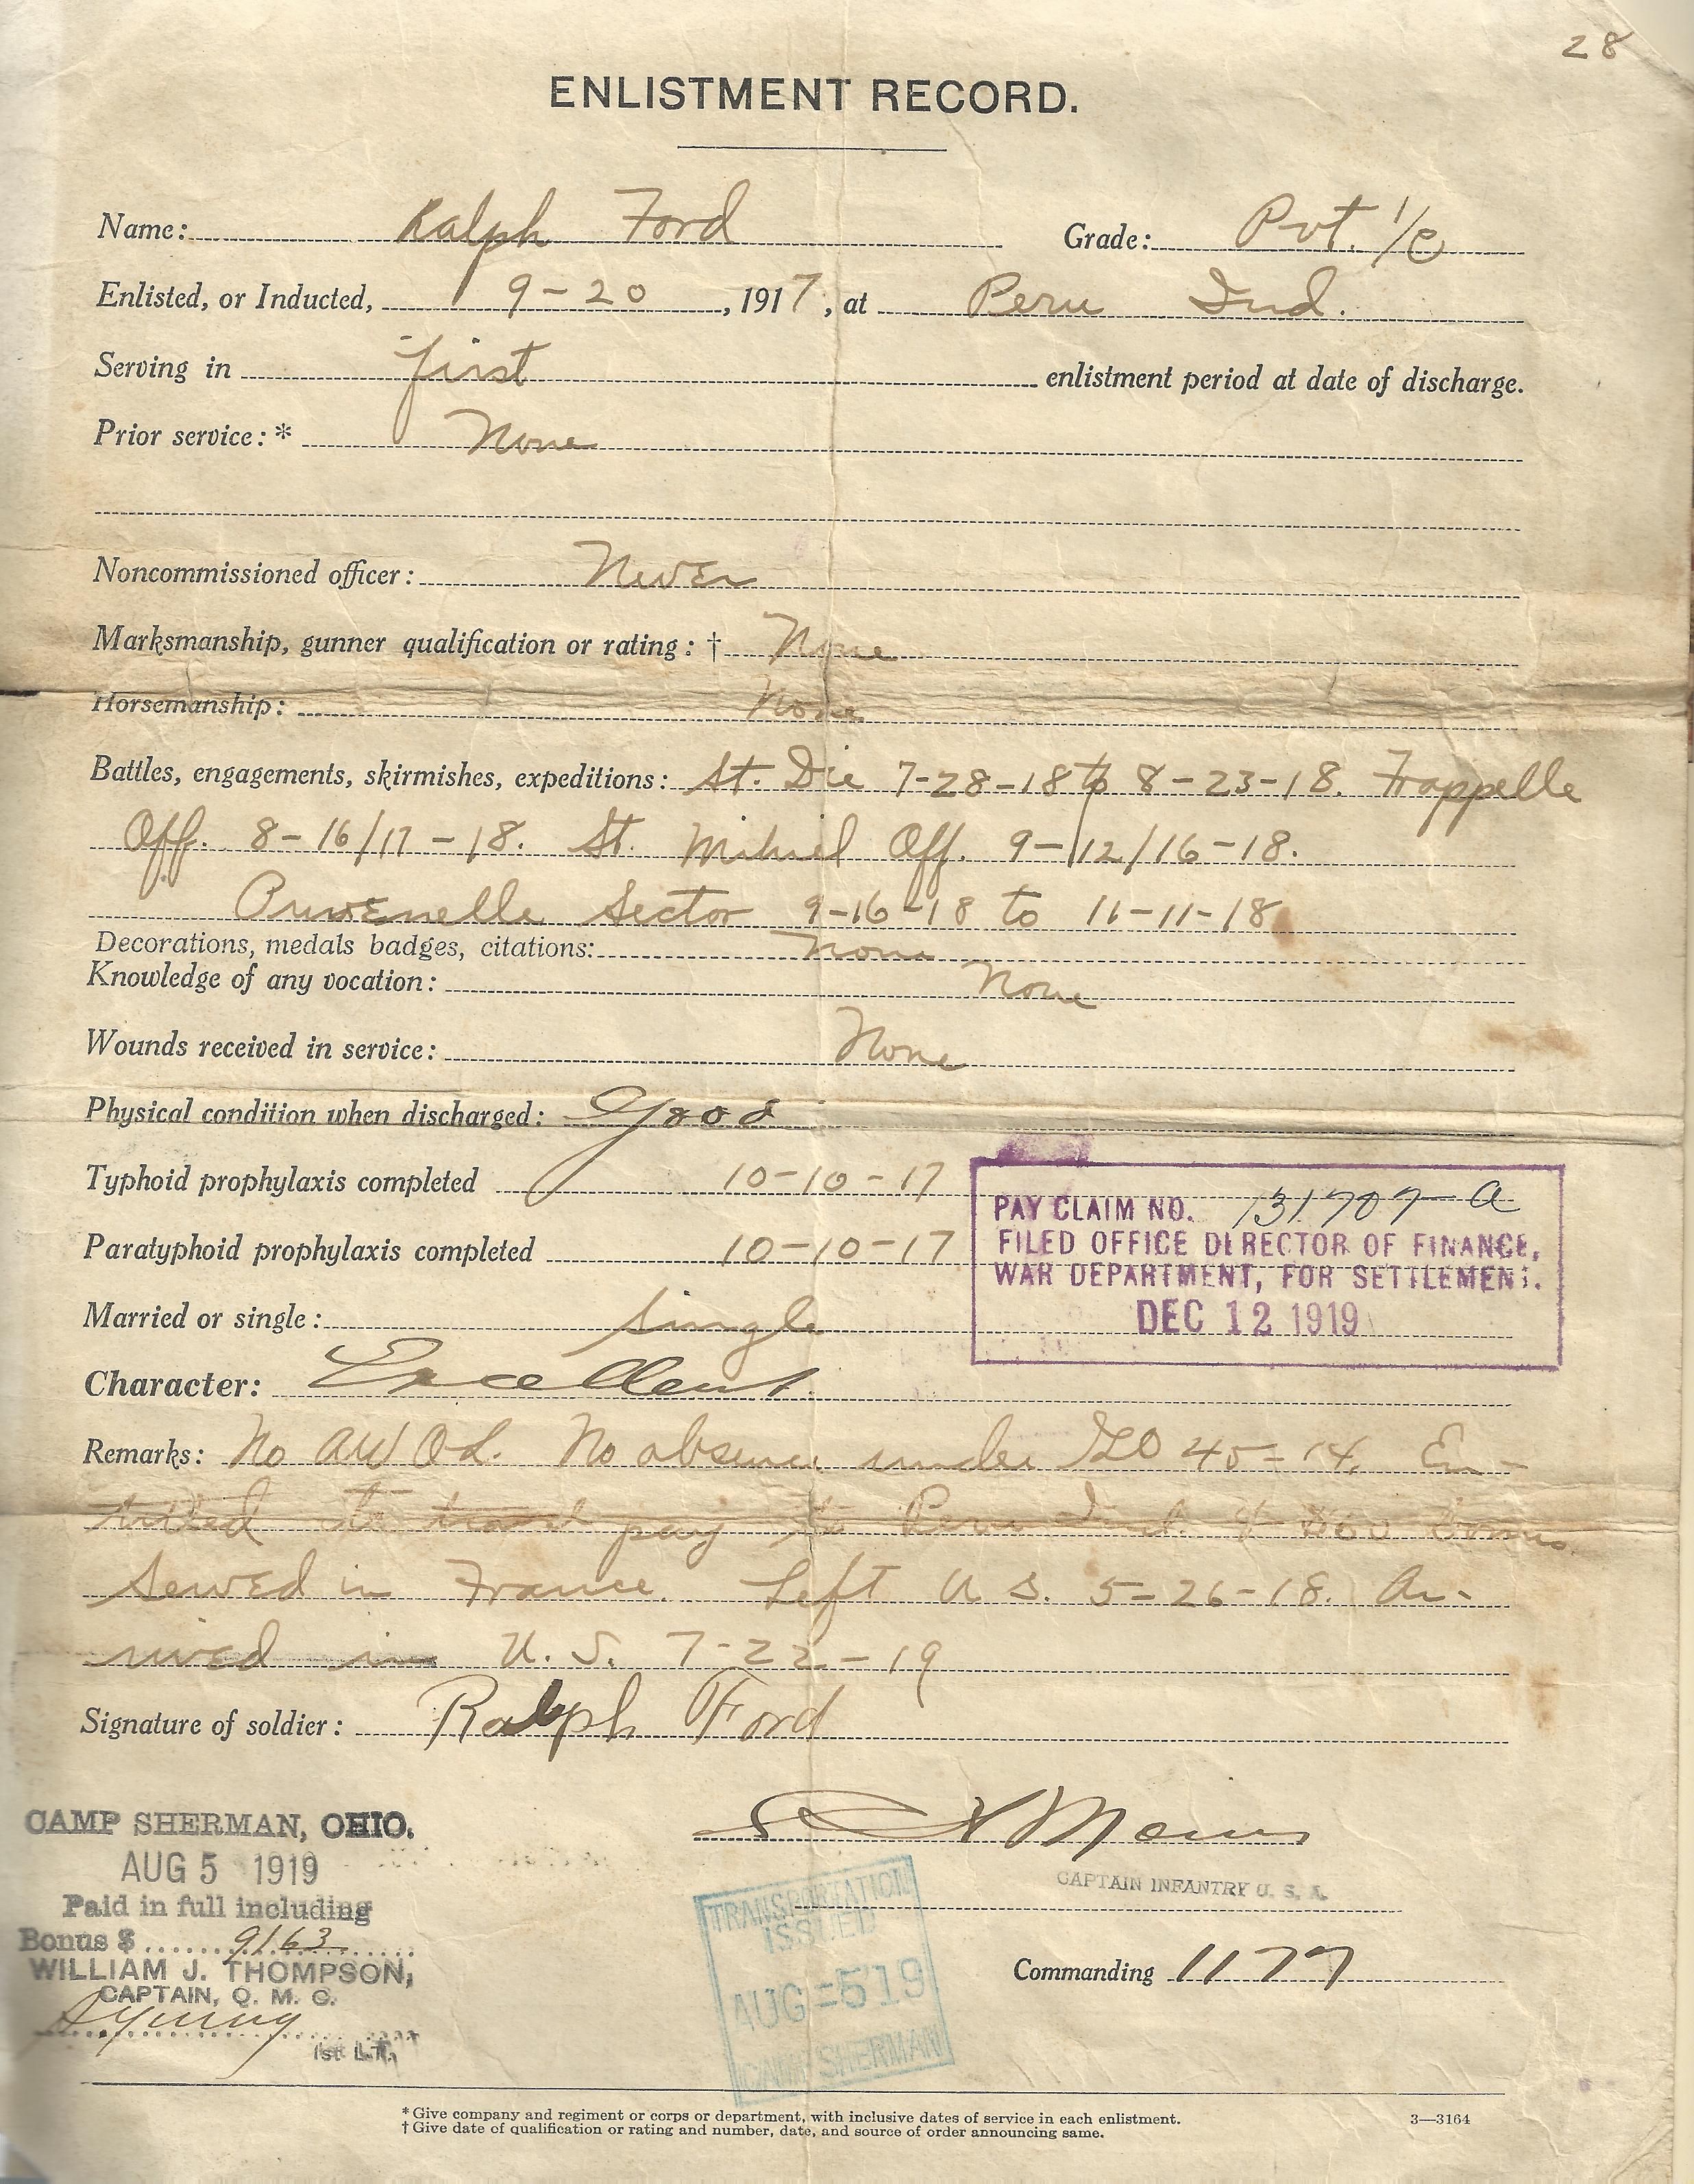 28
ENLISTMENT RECORD.
Name: Ralph Ford Grade: Pvt. 1/c
Enlisted, or Inducted, 9-20, 1917, at Peru Ind.
Serving in first enlistment period at date of discharge.
Prior service:* None
Noncommissioned officer: Never
Marksmanship, gunner qualification or rating:† None
Horsemanship: None
Battles, engagements, skirmishes, expeditions: St. Die 7-28-18 to 8-23-18. Frappelle
Off. 8-16/17-18. St. Mihiel Off. 9-12/16-18.
Puvenelle Sector 9-16-18 to 11-11-18
Decorations, medals badges, citations: None
Knowledge of any vocation: None
Wounds received in service: None
Physical condition when discharged: Good
Typhoid prophylaxis completed 10-10-17
Paratyphoid prophylaxis completed 10-10-17
PAY CLAIM NO. 131707-a
FILED OFFICE DIRECTOR OF FINANCE,
WAR DEPARTMENT, FOR SETTLEMENT.
DEC 12 1919
Married or single: Single
Character: Excellent
Remarks: No AWOL. No absence under GO 45-14. En-
titled to travel pay to Peru Ind. & $60 bonus
Served in France. Left U S. 5-26-18. Ar-
rived in U. S. 7-22-19
Signature of soldier: Ralph Ford
CAPTAIN INFANTRY U. S. A.
Commanding 1177
CAMP SHERMAN, OHIO.
AUG 5 1919
Paid in full including
Bonus $ 9163
WILLIAM J. THOMPSON,
CAPTAIN, Q. M. C.
1st LT.
TRANSPORTATION
ISSUED
AUG-519
CAMP SHERMAN
* Give company and regiment or corps or department, with inclusive dates of service in each enlistment.
† Give date of qualification or rating and number, date, and source of order announcing same.
3—3164